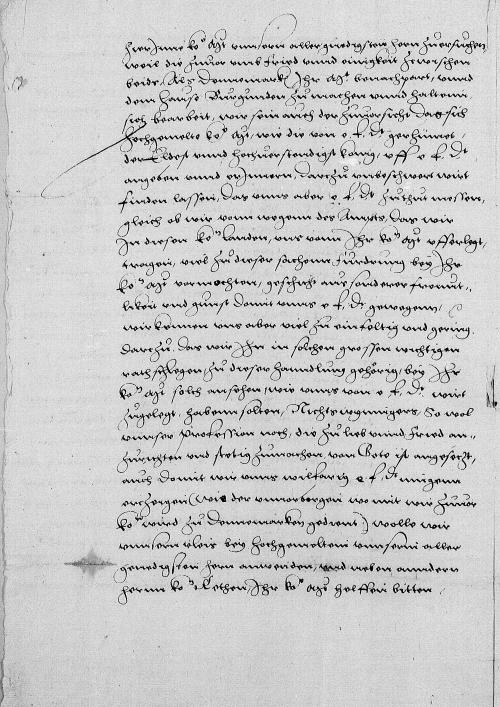 hierInne ko. Mt. vnnsern allergnedigsten hern zuersuchen
weil die zuuor vmb fried vnnd einigkeit zcwischen
beide, Als Dennemarck Ihr Mt. benachpart, vnnd
dem hause Burgunden zumachen vnnd halten
sich bearbeit, wir sein auch der zuuorsicht das sich
hochgemelte ko. Mt. wie die von e. f. dt. gerhumet
der Eldest vnnd hochuerstendigst konig, vff e. f. dt.
angeben vnnd erInnern, darzu vnbeschwert wirt
finden lassen, das vns aber e. f. dt. zuthut messen,
gleich ob wir vonn wegenn des Ampts, das wir
In diesen ko. landen, vns vonn Ihr ko. Mt. vfferlegt,
tragen, viel zu dieser sachenn furdrung bey Ihr
ko. Mt. vermochten, geschicht aus sonderer freunt-
likeit vnd gunst domit vnns e. f. dt. gewogenn,
wir kennen vns aber viel zu einfeltig vnd gering
darzu, das wir Ihn in solchen grossen wichtigen
rathschlegen, zu dieser handlung gehorig, bey Ihr
ko. Mt. solch ansehen, wie vnns von e. f. dt. wirt
zugelegt, habenn solten, Nichts weynnigers, So wol
vnnser profession noch, die zu lieb vnnd fried an-
zurichten vnd stetig zumachen, von Gote ist angesetzt,
auch domit wir vnns wilfarig e. f. dt. mugenn
erczeigen (wie der vnuorborgen wo mit wir zuuor
ko. wird zu Dennemarcken gedient) wolle wir
vnnsern vleis bey hochgemelten vnnserm aller
genedigsten hern anwenden, vnd neben anndern
herrn ko. Rethen, Ihr ko. Mt. helffen bitten